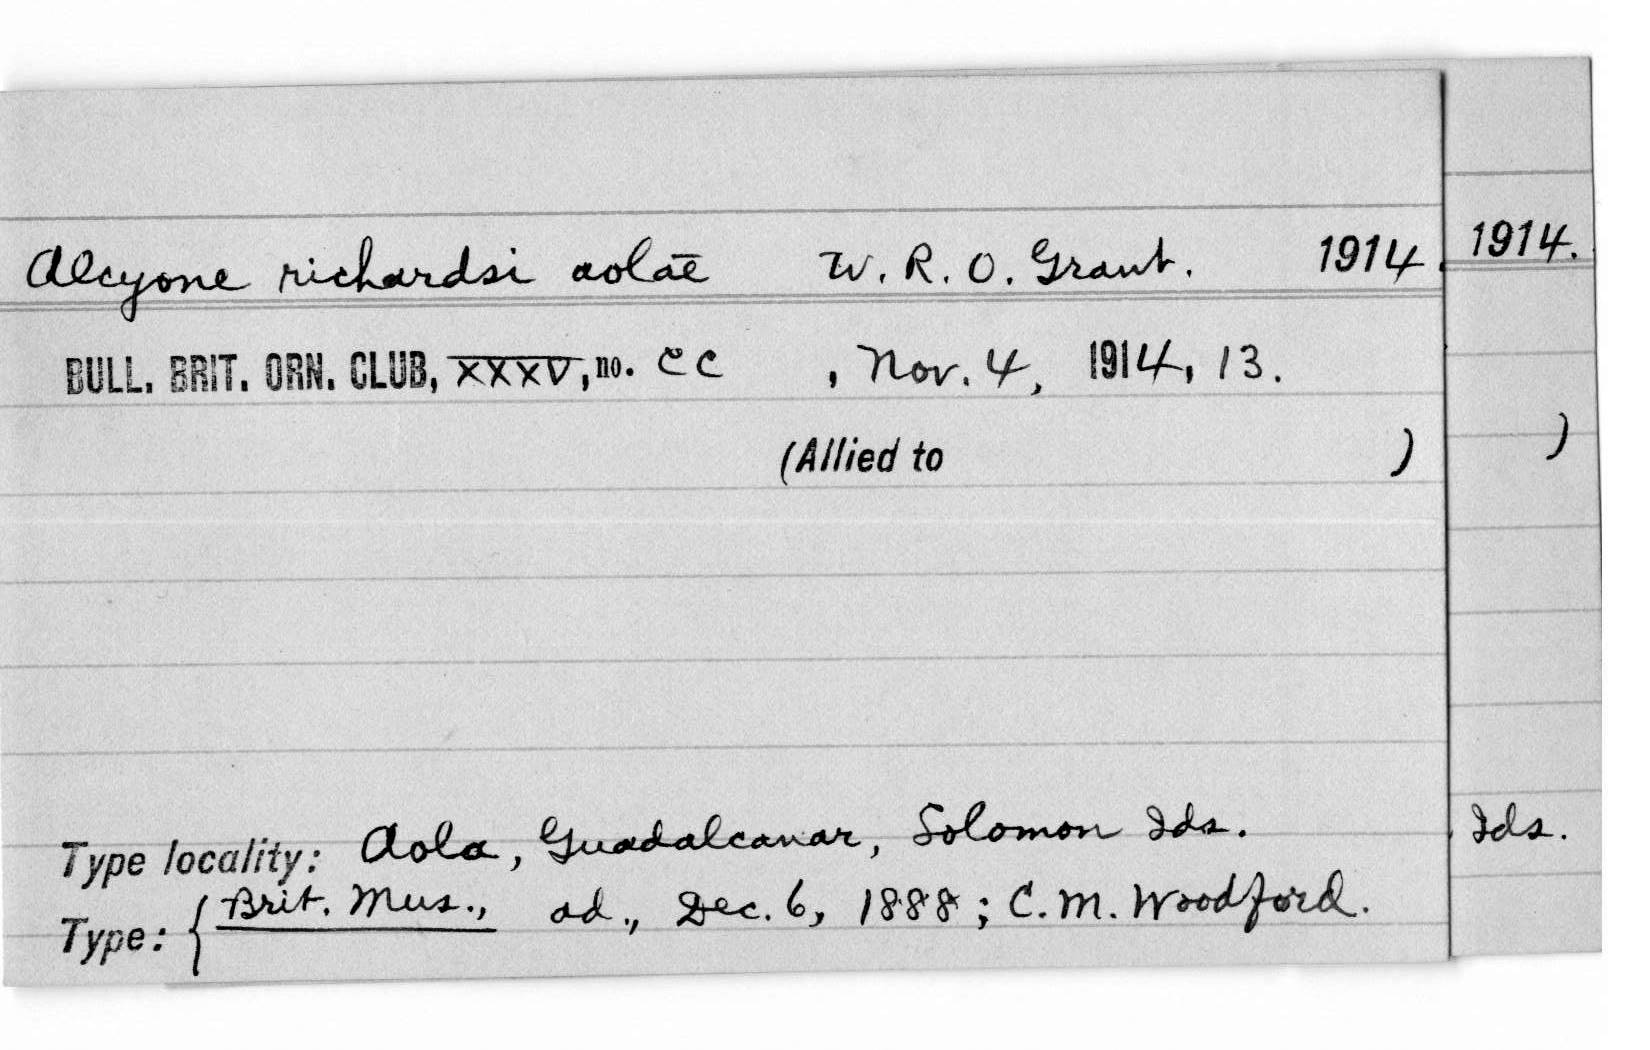 Alcyone richardsi aolae W. R. O. Grant. 1914. 1914.
BULL. BRIT. ORN. CLUB, XXXV, no. CC , Nov. 4, 1914, 13.
(Allied to ) )
Type locality: Aola, Guadalcanar, Solomon Ids. Ids.
Type: { Brit. Mus., ad., Dec. 6, 1888; C. M. Woodford.